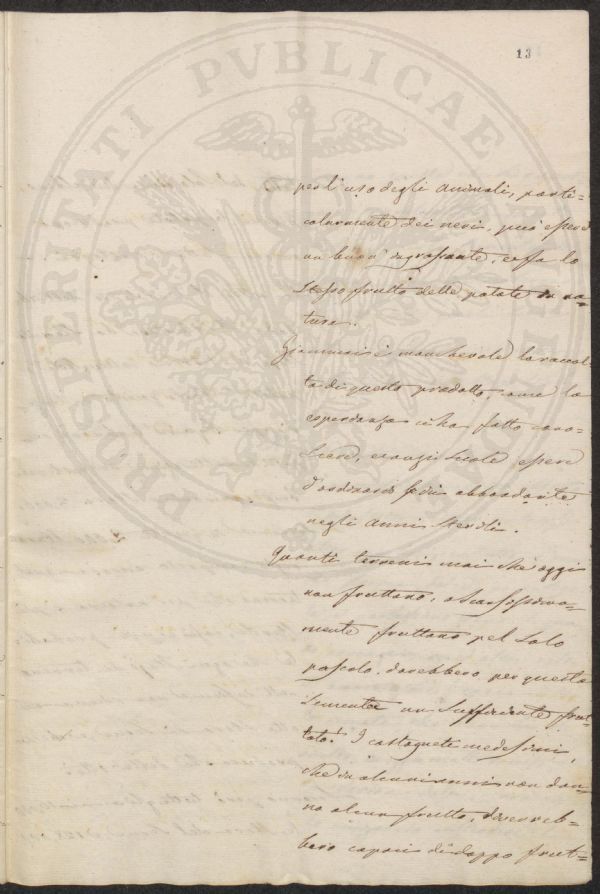 13
PROSPERITATI PVBLICAE AVGENDAE
per l'uso degli animali, parti=
colarmente dei neri, può essere
un buon' ingrassante, essa lo
stesso frutto delle patate in na=
tura.
Giammai è manchevole la raccol=
ta di questo prodotto, come la
esperienza ci ha fatto cono=
scere, ed anzi suole essere
d'ordinario più abbondante
negli anni sterili.
Quanti terreni mai che oggi
non fruttano, o scarsissima=
mente fruttano pel solo
pascolo, darebbero per questa
semente un sufficiente frut=
tato! I castagneti medesimi,
che in alcuni anni non dan=
no alcun frutto, diverreb=
bero capaci di doppio frut=